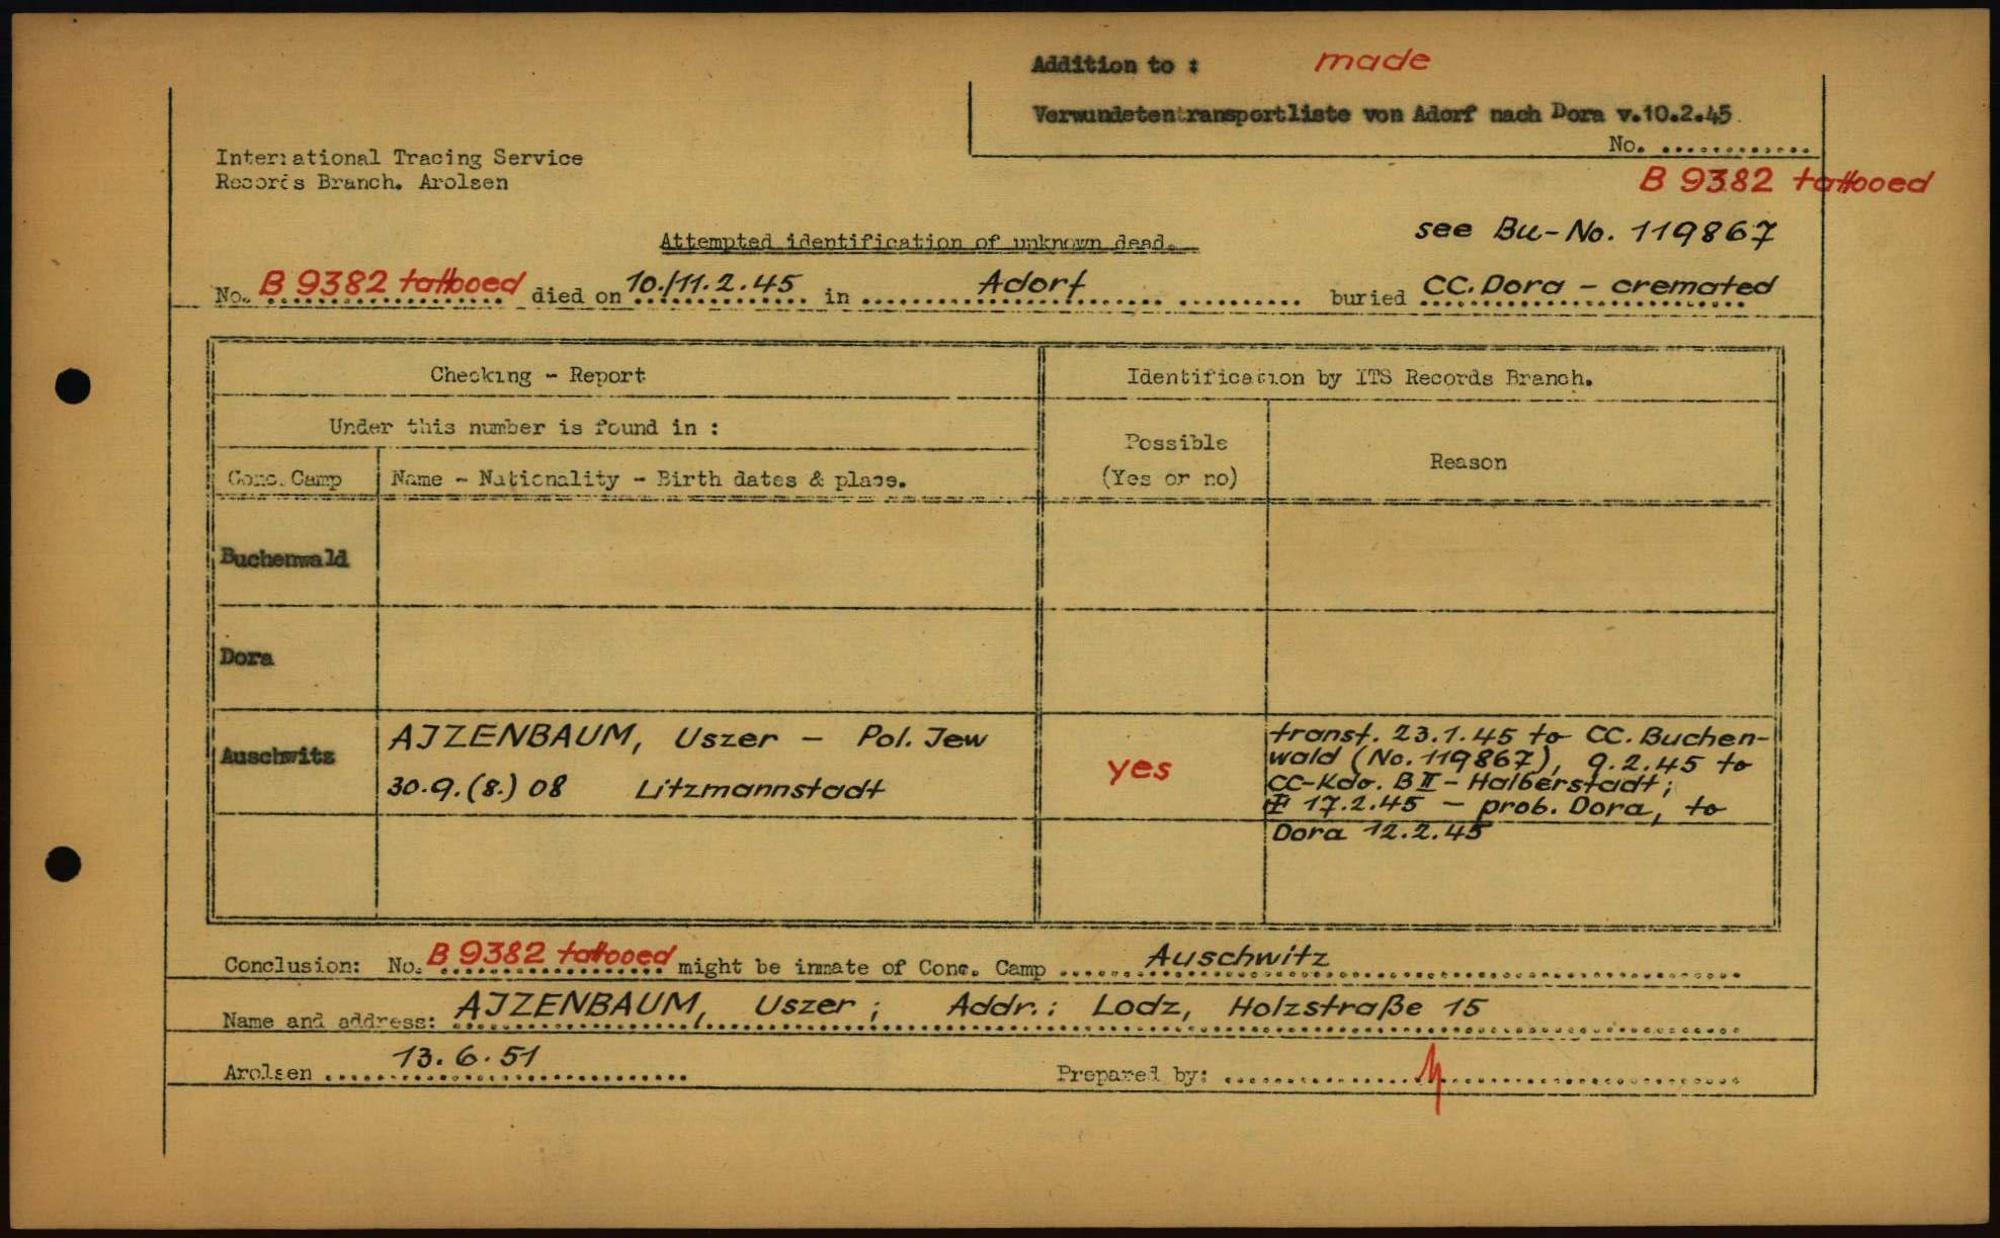 Addition to : made
Verwundetentransportliste von Adorf nach Dora v.10.2.45
No. ............
International Tracing Service
Records Branch. Arolsen
B 9382 tattooed
see Bu-No. 119867
Attempted identification of unknown dead.
No. B 9382 tattooed died on 10./11.2.45 in Adorf buried CC. Dora - cremated
Checking - Report
Identification by ITS Records Branch.
Under this number is found in :
Possible
(Yes or no)
Reason
Conc. Camp
Name - Nationality - Birth dates & place.
Buchenwald
Dora
Auschwitz
AJZENBAUM, Uszer - Pol. Jew
30.9.(8.) 08 Litzmannstadt
yes
transf. 23.1.45 to CC. Buchen-
wald (No. 119867), 9.2.45 to
CC-Kdo. B II - Halberstadt;
17.2.45 - prob. Dora, to
Dora 12.2.45
Conclusion: No. B 9382 tattooed might be inmate of Conc. Camp Auschwitz
Name and address: AJZENBAUM, Uszer; Addr.: Lodz, Holzstraße 15
Arolsen 13.6.51
Prepared by: